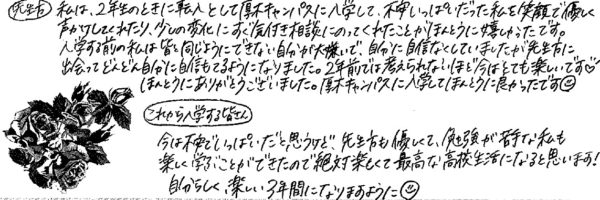 先生方
私は、2年生のときに転入として厚木キャンパスに入学して、不安いっぱいだった私を笑顔で優しく
声かけしてくれたり、少しの変化にすぐ気付き相談にのってくれたことがほんとうに嬉しかったです。
入学する前の私は皆と同じようにできない自分が大嫌いで、自分に自信なくしていましたが先生方に
出会ってどんどん自分に自信もてるようになりました。2年前では考えられないほど今はとても楽しいです♡
ほんとうにありがとうございました。厚木キャンパスに入学してほんとうに良かったです☺
これから入学する皆さん
今は不安でいっぱいだと思うけど、先生方も優しくて、勉強が苦手な私も
楽しく学ぶことができたので絶対楽しくて最高な高校生活になると思います!
自分らしく、楽しい3年間になりますように☺